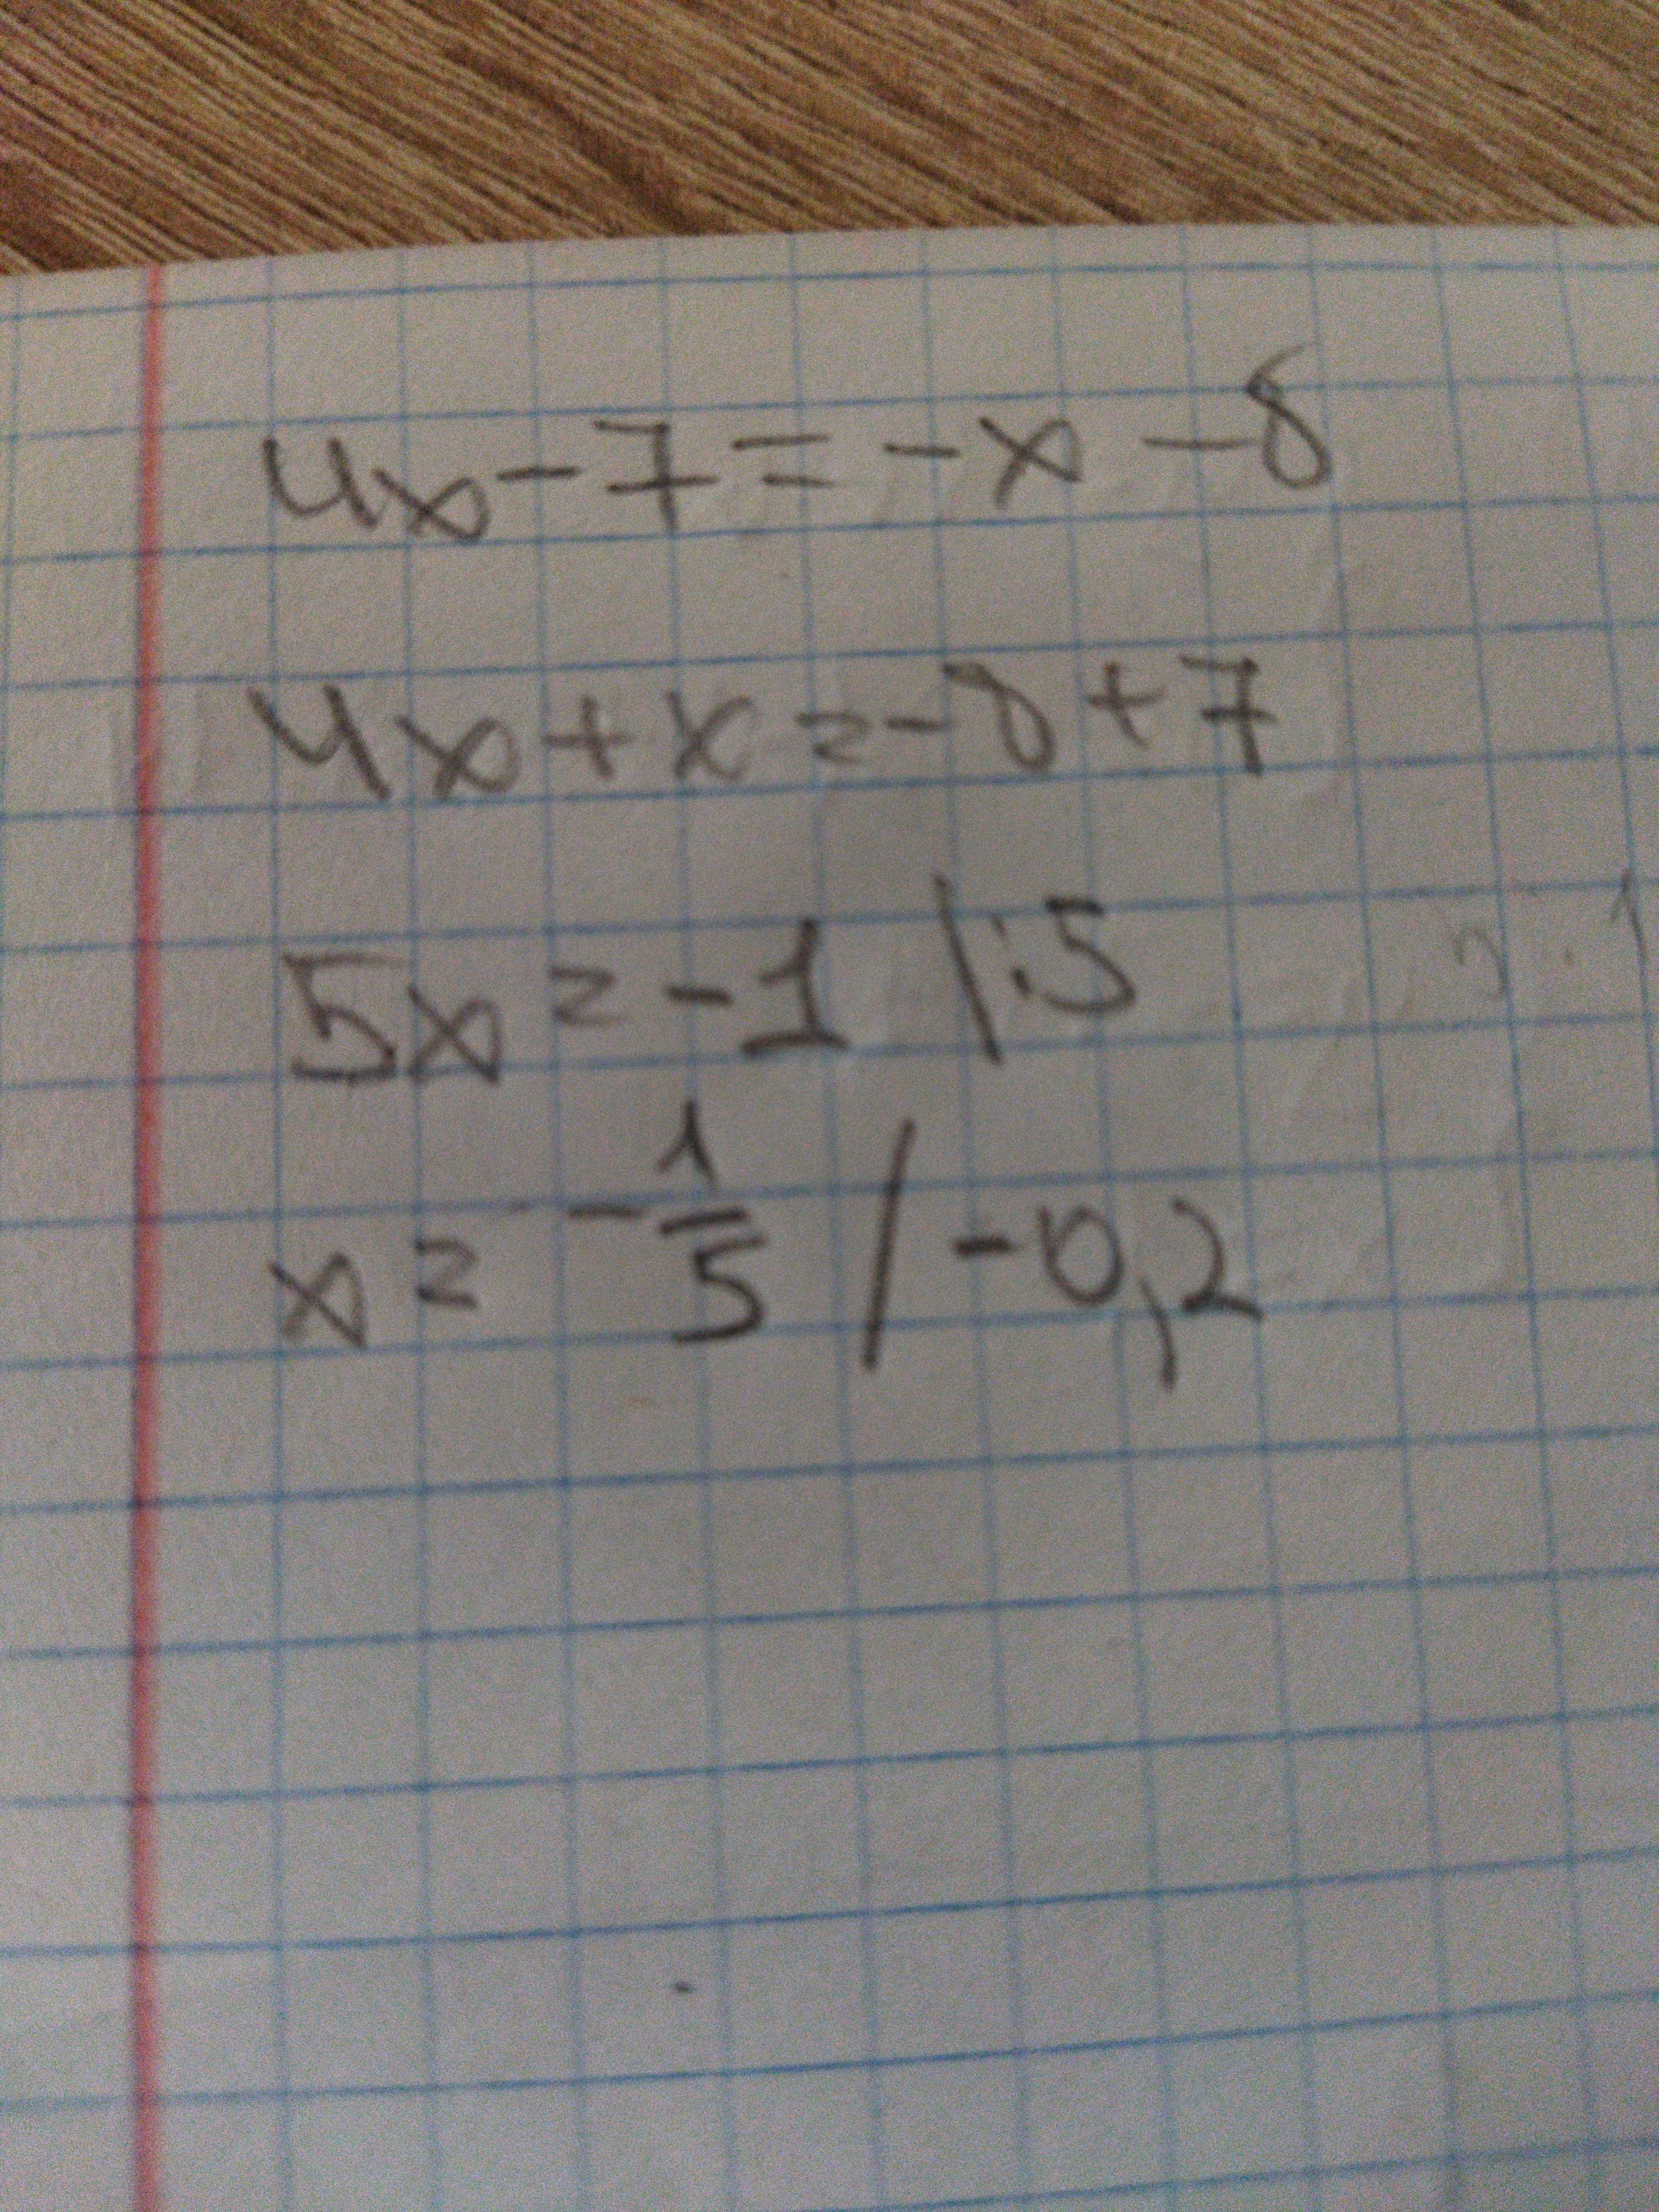 4x - 7 = -x - 8
4x + x = -8 + 7
5x = -1 |:5
x = -1/5 / -0,2